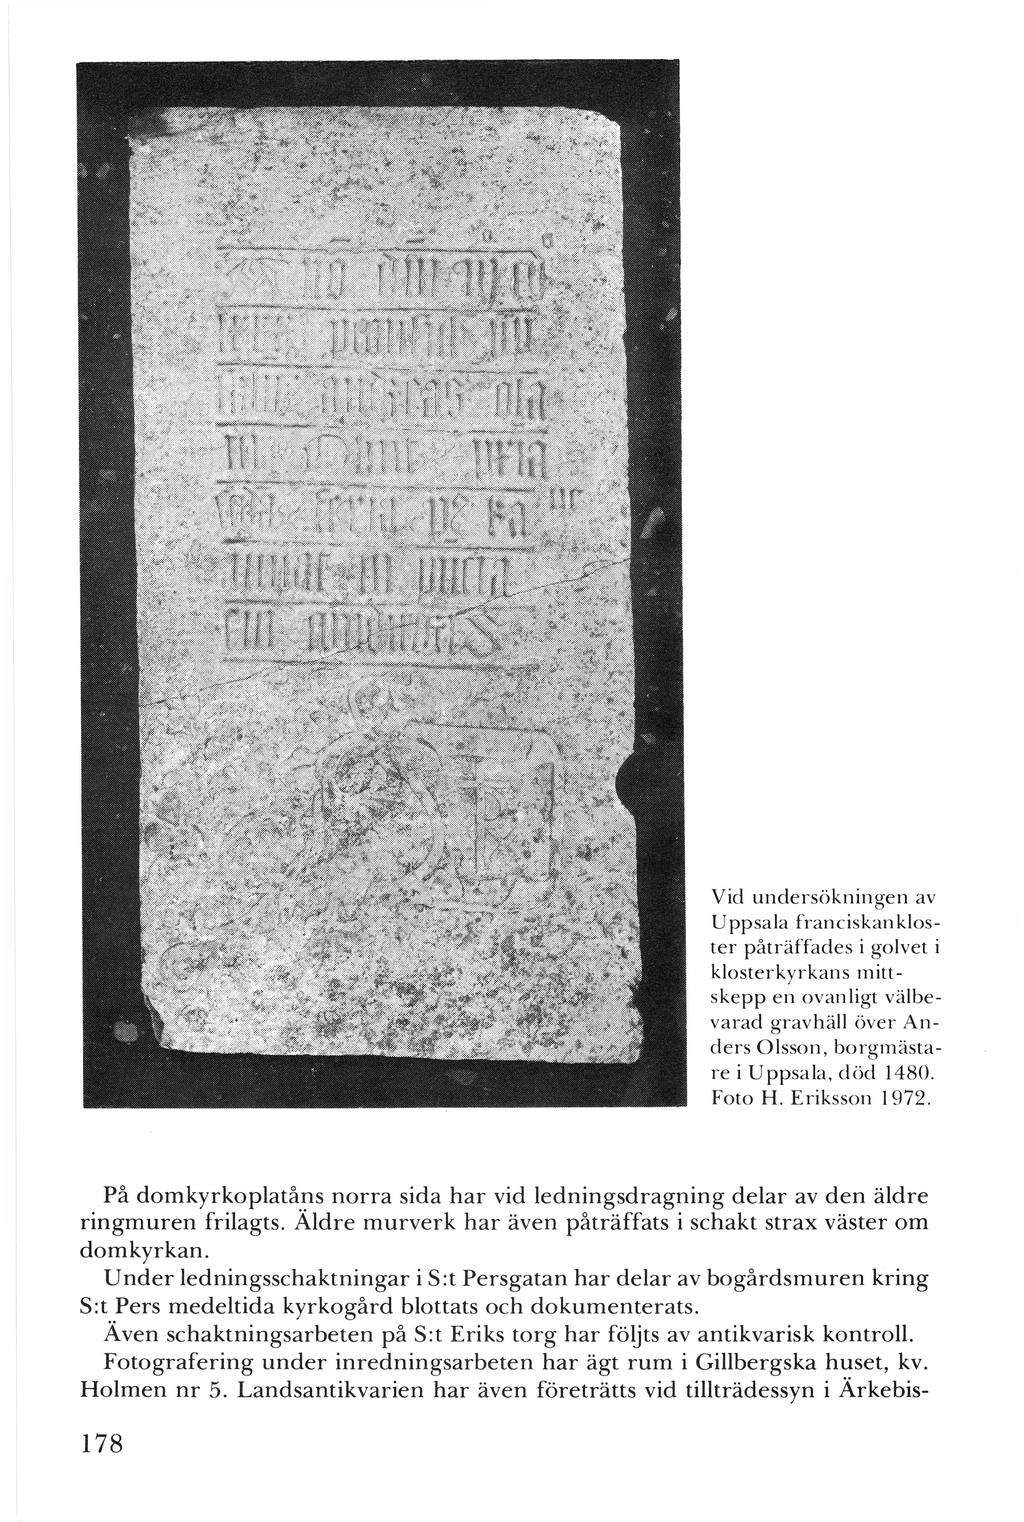 Vid undersökningen av
Uppsala franciskanklos-
ter påträffades i golvet i
klosterkyrkans mitt-
skepp en ovanligt välbe-
varad gravhäll över An-
ders Olsson, borgmästa-
re i Uppsala, död 1480.
Foto H. Eriksson 1972.
På domkyrkoplatåns norra sida har vid ledningsdragning delar av den äldre
ringmuren frilagts. Äldre murverk har även påträffats i schakt strax väster om
domkyrkan.
Under ledningsschaktningar i S:t Persgatan har delar av bogårdsmuren kring
S:t Pers medeltida kyrkogård blottats och dokumenterats.
Även schaktningsarbeten på S:t Eriks torg har följts av antikvarisk kontroll.
Fotografering under inredningsarbeten har ägt rum i Gillbergska huset, kv.
Holmen nr 5. Landsantikvarien har även företrätts vid tillträdessyn i Ärkebis-
178